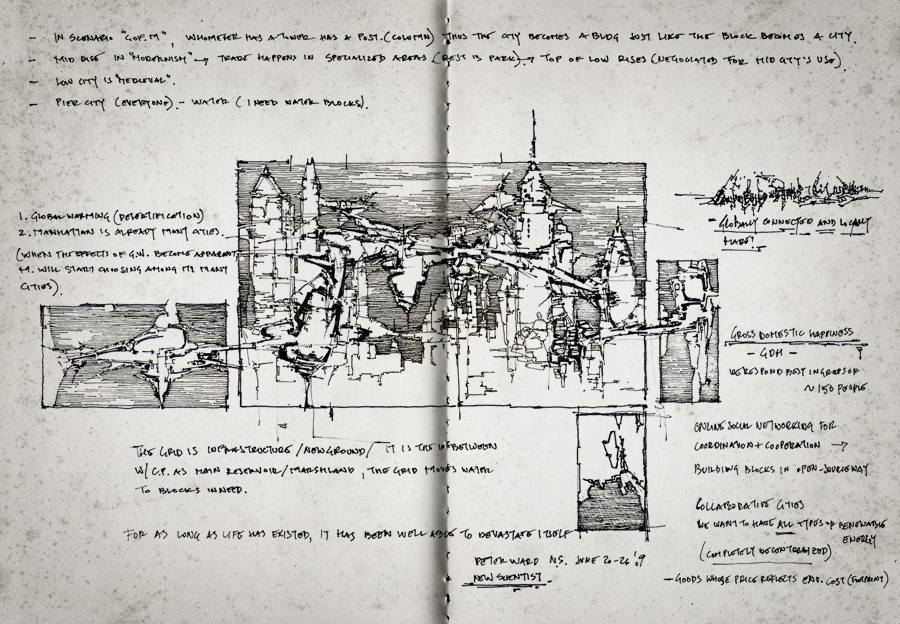 - IN SCENARIO "GOP.M", WHOMEVER HAS A TOWER HAS A POST. (COLUMN) THUS THE CITY BECOMES A BLDG JUST LIKE THE BLOCK BECOMES A CITY.
- MID RISE IN "MODERNISM" → TRADE HAPPENS IN SPECIALIZED AREAS (REST IS PARK) → TOP OF LOW RISES (NEGOCIATED FOR MID CITY'S USE).
- LOW CITY IS "MEDIEVAL".
- PIER CITY (EVERYONE). - WATER (I NEED WATER BLOCKS).
1. GLOBAL WARMING (DESERTIFICATION)
2. MANHATTAN IS ALREADY MANY CITIES.
(WHEN THE EFFECTS OF G.W. BECOME APPARENT
M. WILL START CHOOSING AMONG ITS MANY
CITIES).
- GLOBALLY CONNECTED AND LOCALLY
MADE!
GROSS DOMESTIC HAPPINESS
- GDH -
WE RESPOND BEST IN GROUPS OF
~ 150 PEOPLE
ONLINE SOCIAL NETWORKING FOR
COORDINATION + COOPERATION →
BUILDING BLOCKS IN OPEN-SOURCE WAY
COLLABORATIVE CITIES
WE WANT TO HAVE ALL TYPES OF RENEWABLE
ENERGY
(COMPLETELY DECENTRALIZED)
- GOODS WHOSE PRICE REFLECTS ENV. COST (FOOTPRINT)
THE GRID IS INFRASTRUCTURE / NEW GROUND / IT IS THE IN BETWEEN
W/ C.P. AS MAIN RESERVOIR / MARSHLAND, THE GRID MOVES WATER
TO BLOCKS IN NEED.
FOR AS LONG AS LIFE HAS EXISTED, IT HAS BEEN WELL ABLE TO DEVASTATE ITSELF
PETER WARD N.S. JUNE 20-26 '09
NEW SCIENTIST.